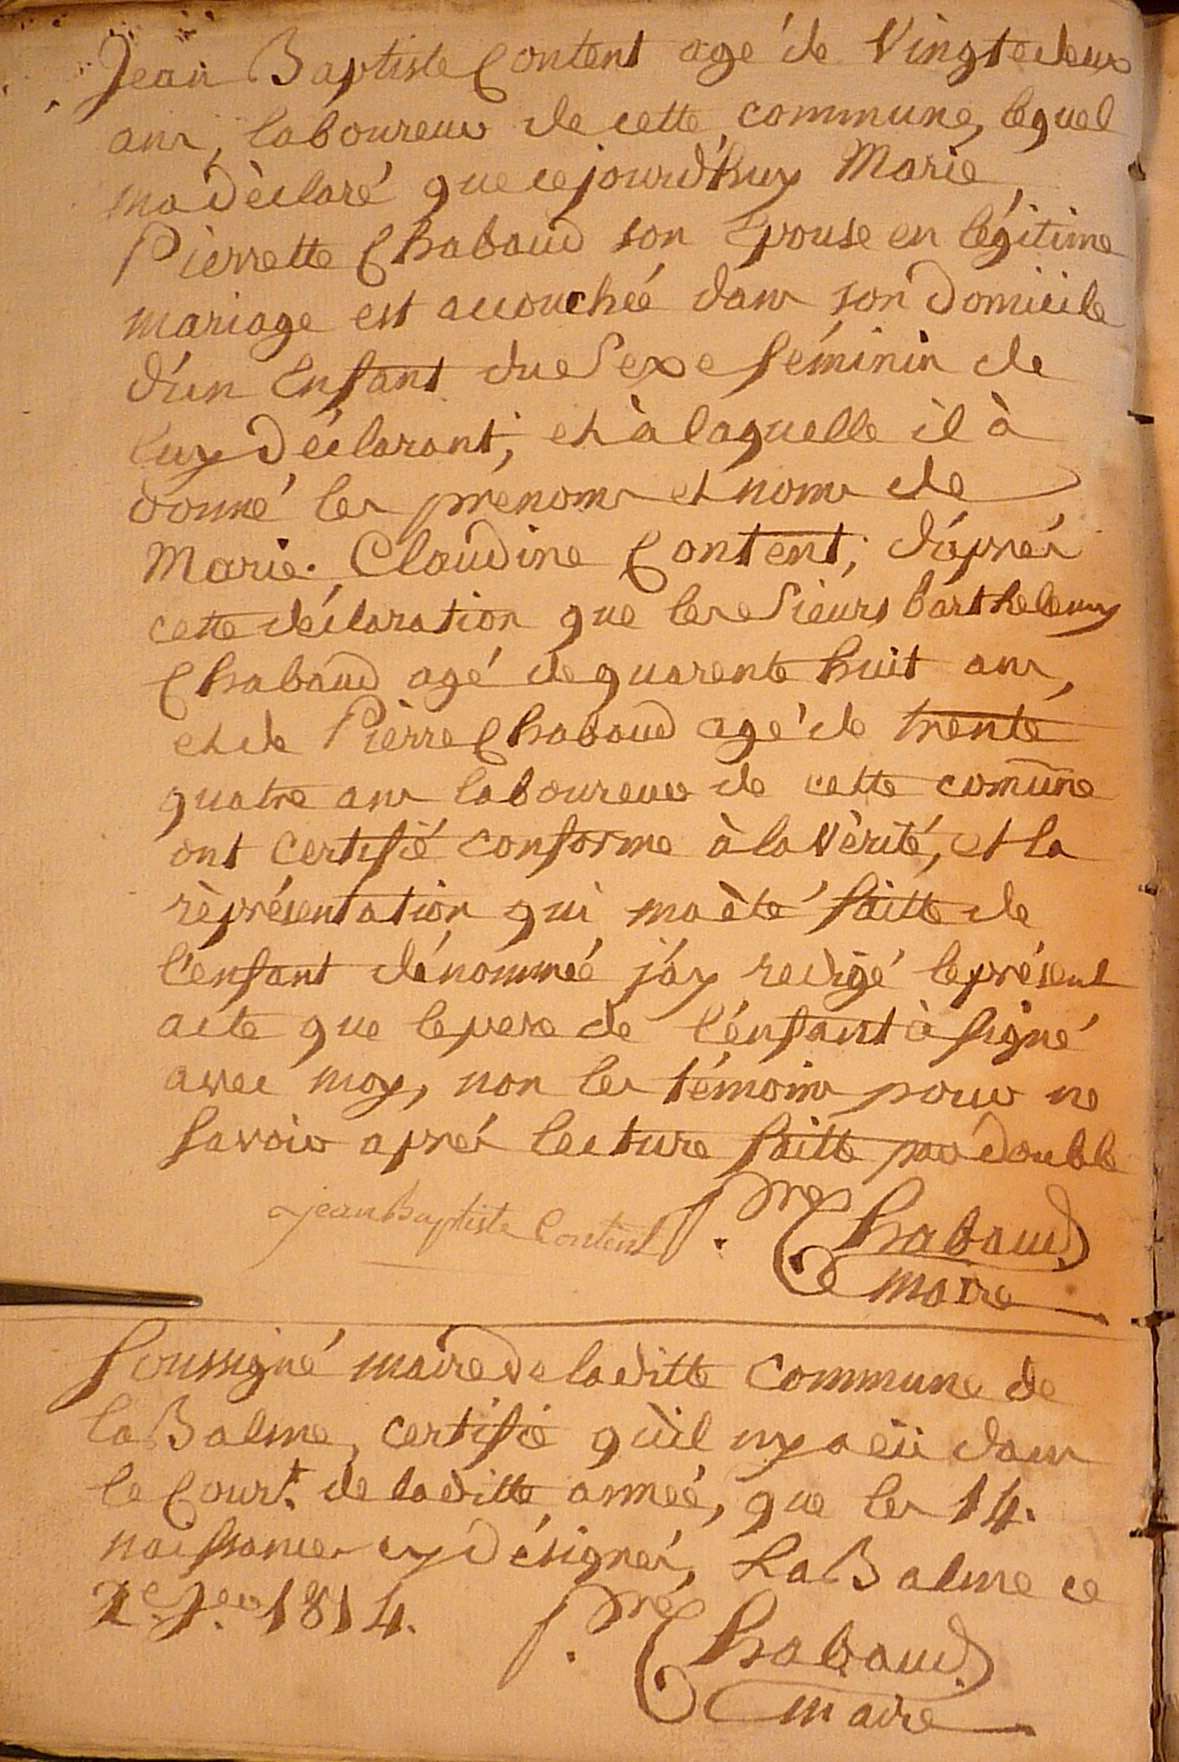 Jean Baptiste Content agé de Vingtedeux
ans, laboureur de cette commune, lequel
ma dèclaré que cejourd'huy Marie
Pierrette Chabaud son Epouse en légitime
mariage est accouchéé dans son Domicile
d'un Enfant due Sexe féminin de
luy Déclarant; et à laquelle il à
donné les prenoms et noms de
Marie. Claudine Content; d'áprés
cette déclaration que les Sieurs barthelemy
Chabaud agé de quarente huit ans,
et de Pièrre Chabaud agé de trente
quatre ans laboureur de cette comune
ont certifié conforme à la Vèrité, et la
rèprésentation qui ma èté faitte de
l'enfant dénommée j'ay redigé le présent
acte que le pere de l'énfant à signé
avec moy, non les témoins pour ne
savoir aprés lecture faitte par double
jean Baptiste Content J. Pre Chabaud
maire
Soussigné maire de laditte Commune de
la Balme, certifie qu'il ny a eü dans
le Court. de laditte année, que les 14.
naissances cy Désignés, La Balme ce
1814. J. Pre Chabaud
maire